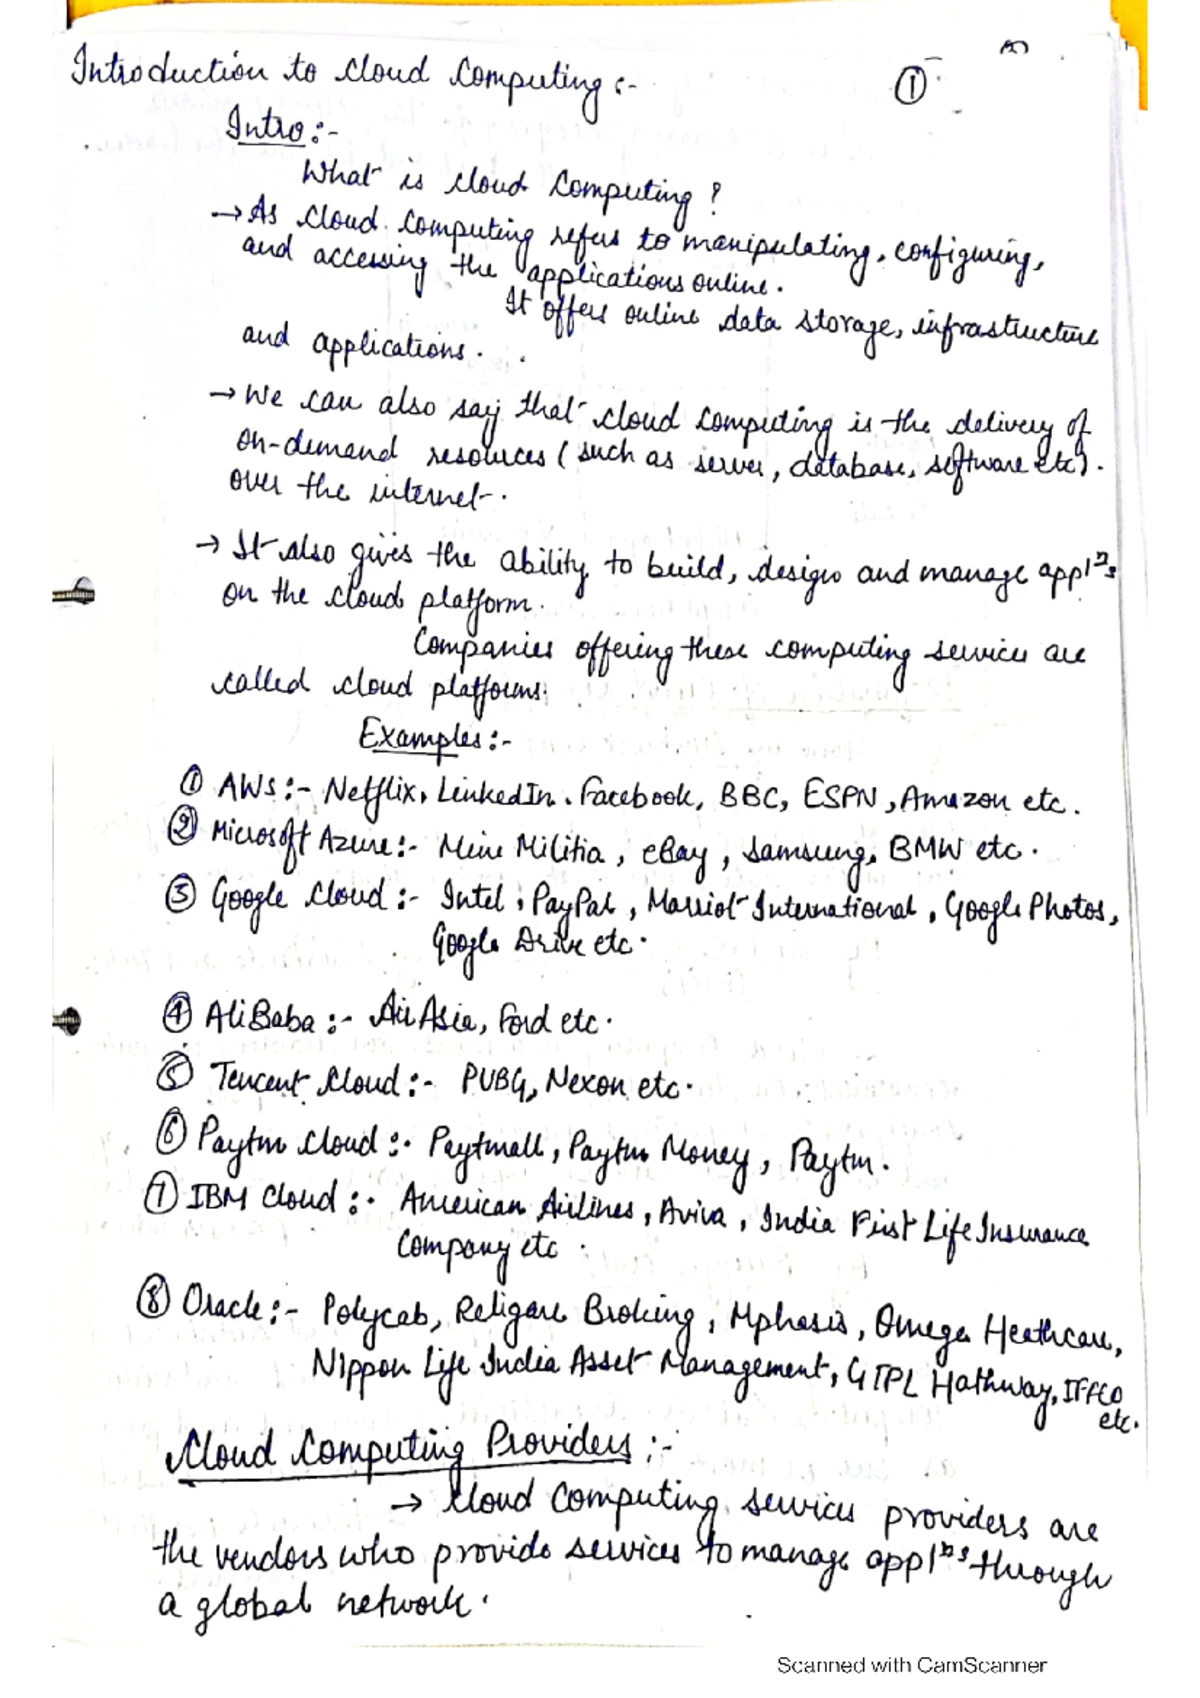 Introduction to Cloud Computing :-
①
Intro :-
What is Cloud Computing ?
→ As Cloud Computing refers to manipulating, configuring,
and accessing the applications online.
It offers online data storage, infrastructure
and applications.
→ We can also say that cloud computing is the delivery of
on-demand resources (such as server, database, software etc).
over the internet.
→ It also gives the ability to build, design and manage applⁿs
on the cloud platform.
Companies offering these computing services are
called cloud platforms.
Examples :-
① AWS :- Netflix, LinkedIn, Facebook, BBC, ESPN, Amazon etc.
② Microsoft Azure :- Militia, eBay, Samsung, BMW etc.
③ Google Cloud :- Intel, PayPal, Marriot International, Google Photos,
Google Drive etc.
④ AliBaba :- AirAsia, Ford etc.
⑤ Tencent Cloud :- PUBG, Nexon etc.
⑥ Paytm Cloud :- Paytmall, Paytm Money, Paytm.
⑦ IBM Cloud :- American Airlines, Aviva, India First Life Insurance
Company etc.
⑧ Oracle :- Polycab, Religare Broking, Mphasis, Omega Heathcare,
Nippon Life India Asset Management, GTPL Hathway, IFFCO
etc.
Cloud Computing Providers :-
→ Cloud Computing services providers are
the vendors who provide services to manage applⁿs through
a global network.
Scanned with CamScanner